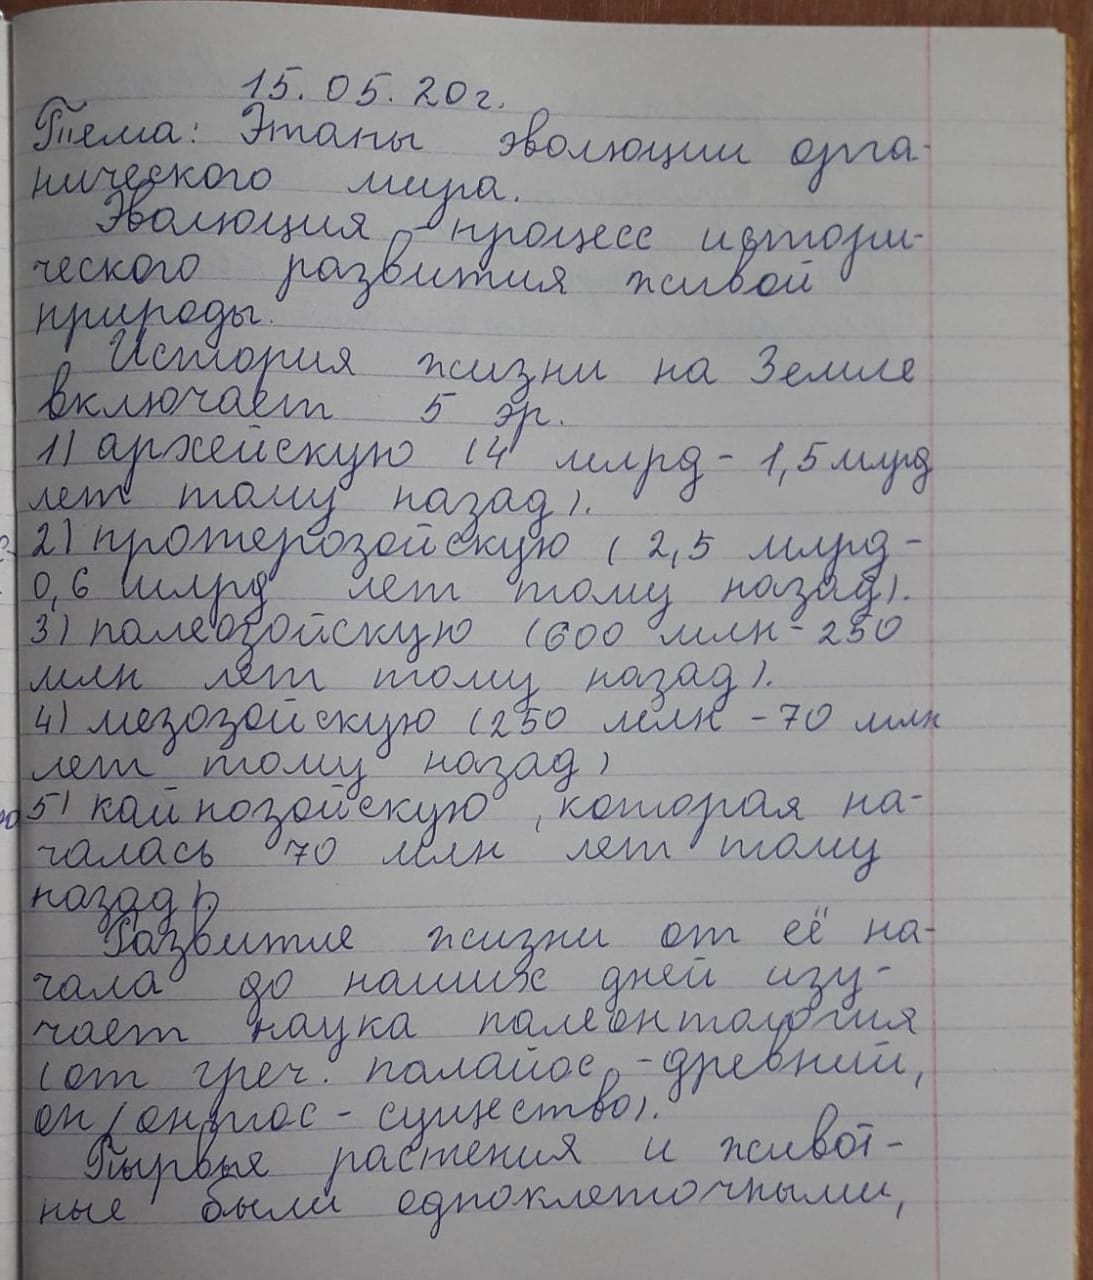 15.05.20г.
Тема: Этапы эволюции орга-
нического мира.
Эволюция - процесс истори-
ческого развития живой
природы.
История жизни на Земле
включает 5 эр.
1) архейскую (4 млрд - 1,5 млрд
лет тому назад).
2) протерозойскую (2,5 млрд -
0,6 млрд лет тому назад).
3) палеозойскую (600 млн - 250
млн лет тому назад).
4) мезозойскую (250 млн - 70 млн
лет тому назад)
5) кайнозойскую, которая на-
чалась 70 млн лет тому
назад).
Развитие жизни от её на-
чала до наших дней изу-
чает наука палеонтология
(от греч. палайос - древний,
он/онтос - существо).
Пырвые растения и живот-
ные были одноклеточными,